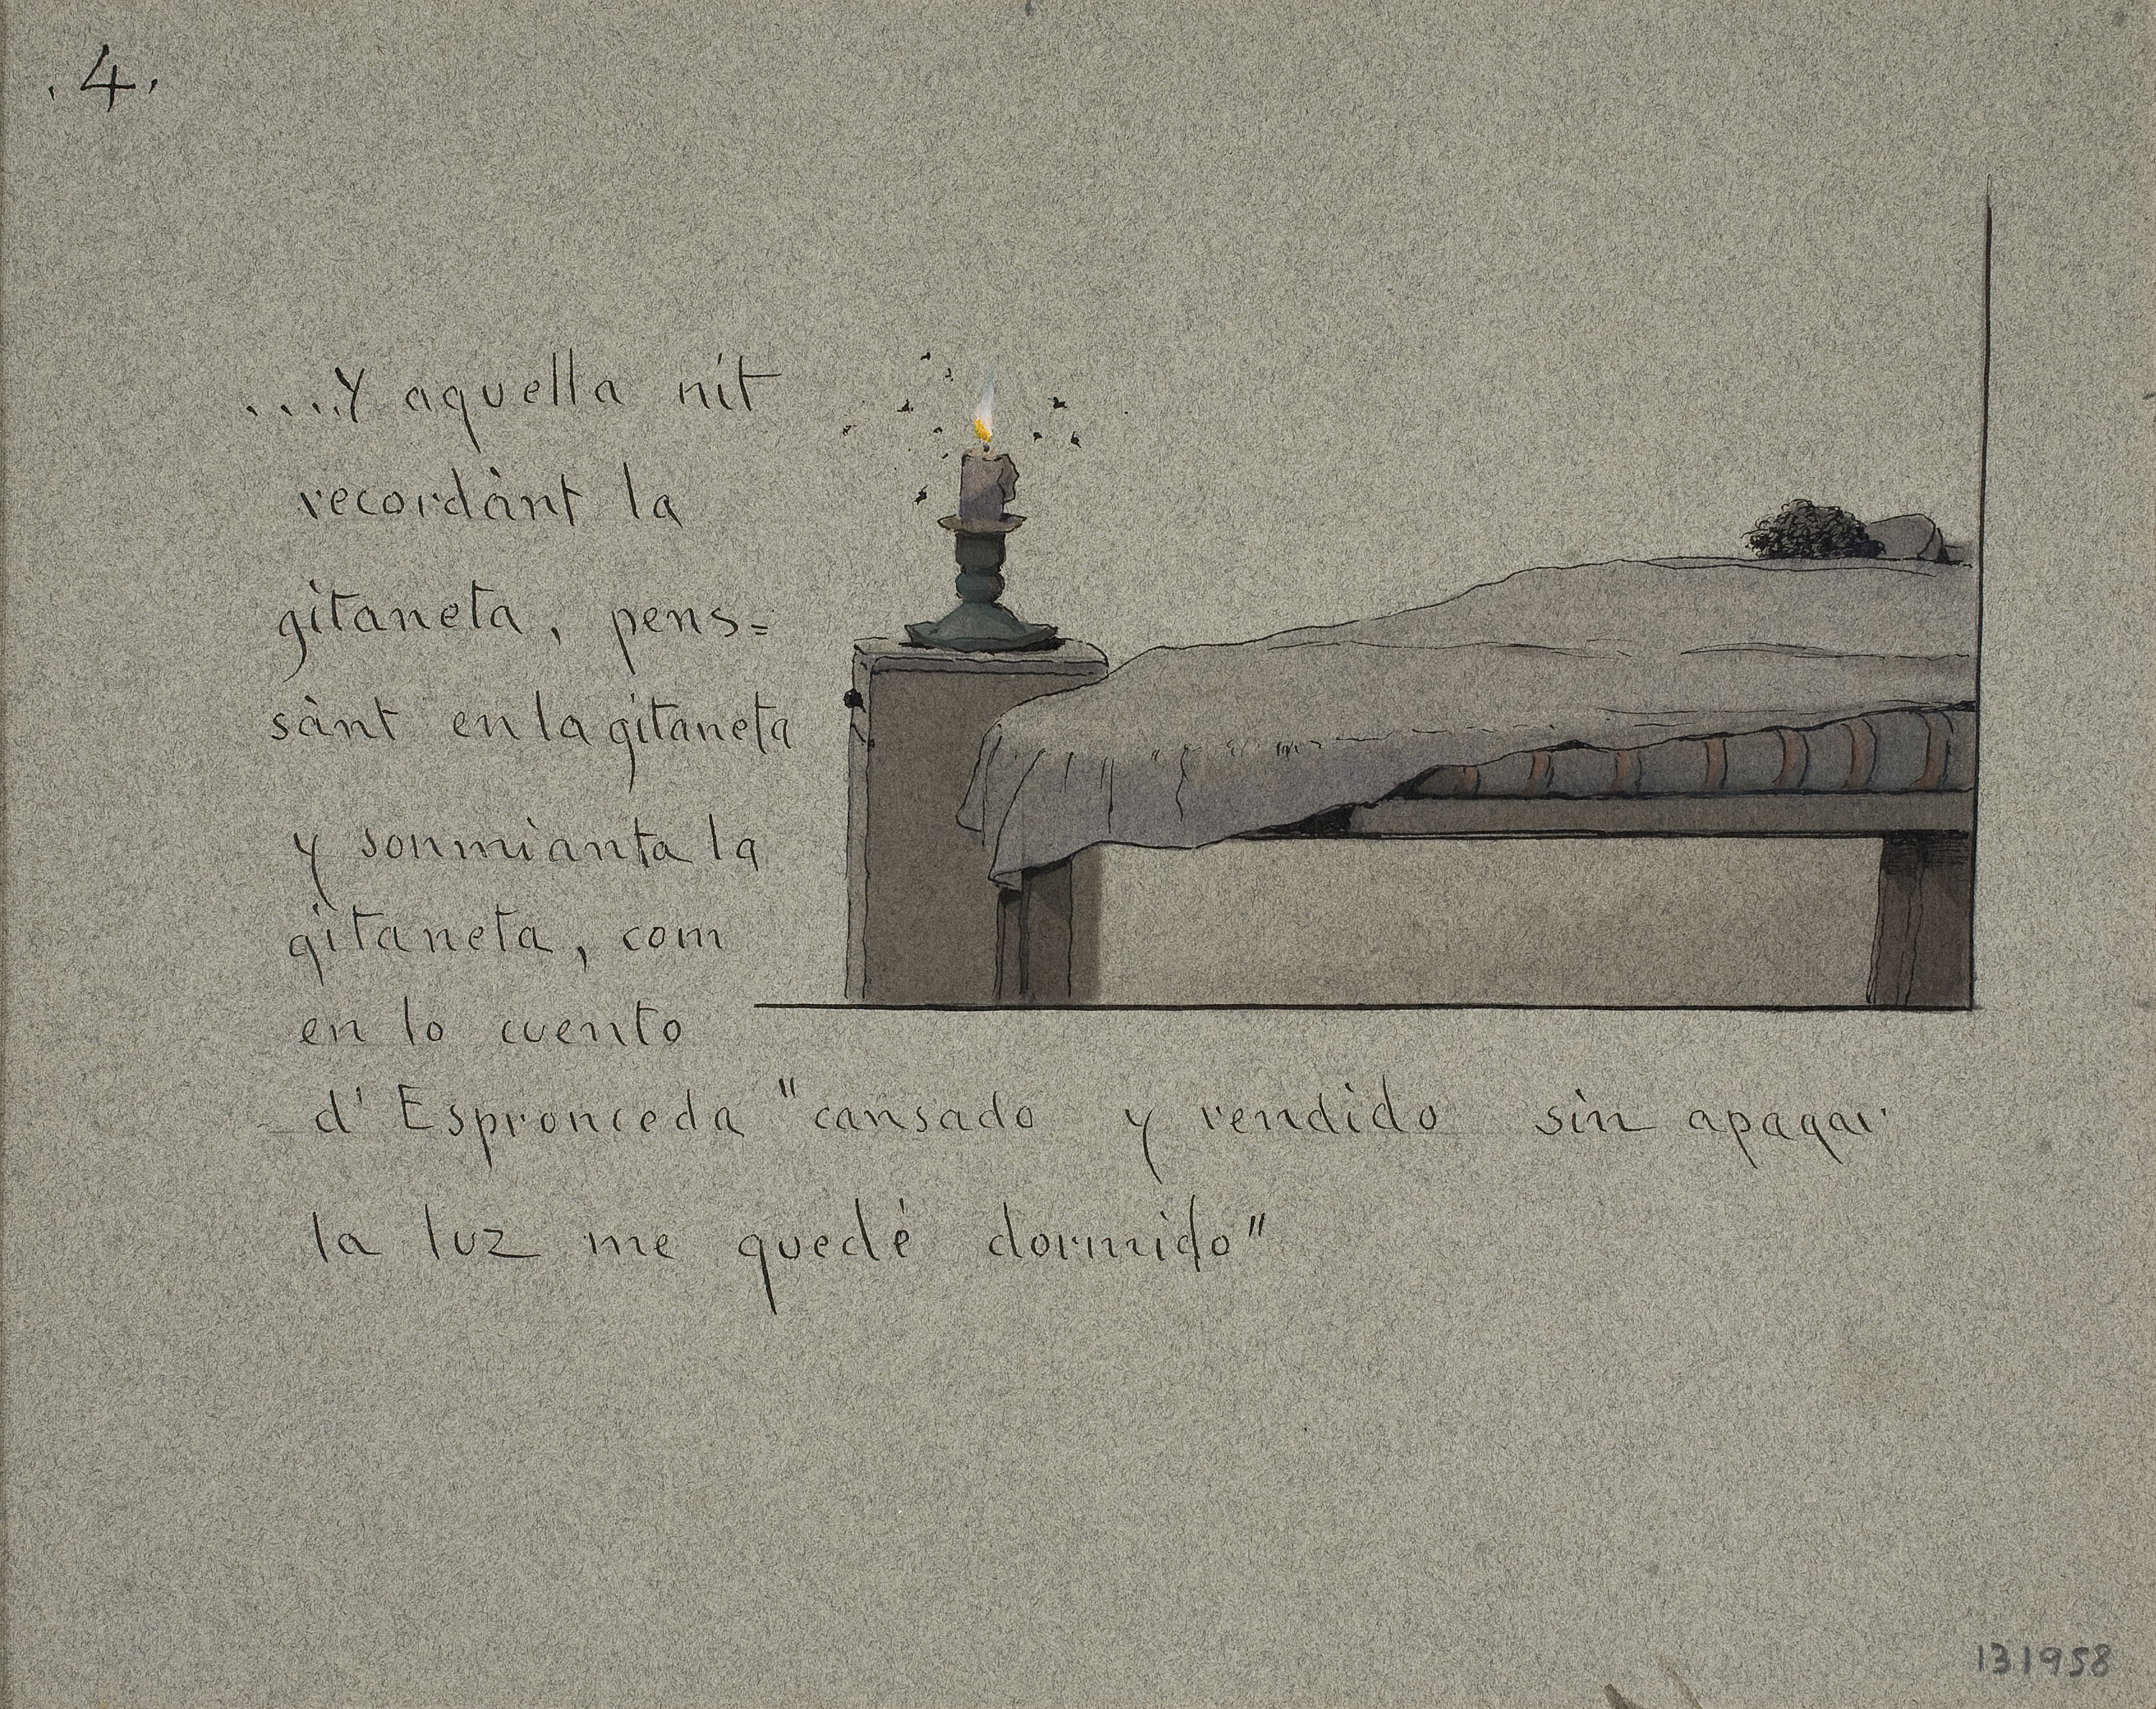 .4.
....Y aquella nit
recordànt la
gitaneta, pens=
sànt en la gitaneta
y sonmianta la
gitaneta, com
en lo cuento
d' Espronceda "cansado y rendido sin apagar
la luz me quedé dormido"
131958